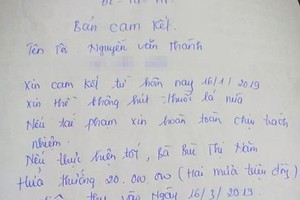 Bản cam kết.
Tên Tôi Nguyễn Văn Thành
Xin cam kết từ hôm nay 16/1/2019
Xin thề không hút thuốc lá nữa
Nếu tái phạm xin hoàn toàn chịu trách
nhiệm.
Nếu thực hiện tốt, Bà Bùi Thị Năm
Hứa thưởng 20.000.000 (Hai mươi triệu đồng)
vào Ngày 16/3/2019.